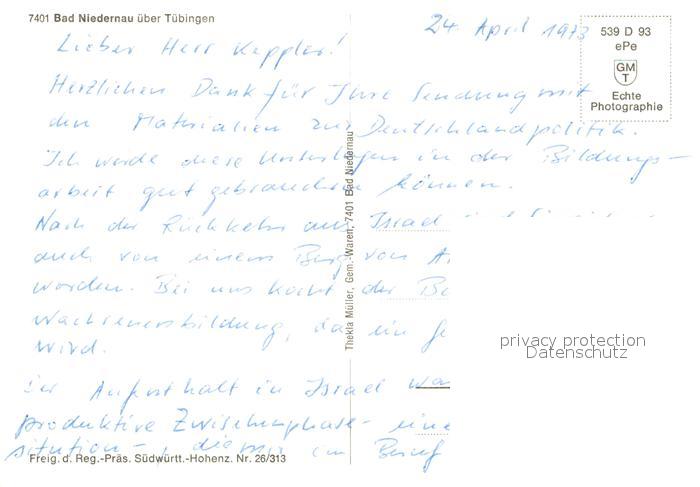 7401 Bad Niedernau über Tübingen
24. April 1973
539 D 93
ePe
GM
T
Echte
Photographie
Lieber Herr Keppler!
Herzlichen Dank für Ihre Sendung mit
den Materialien zur Deutschlandpolitik.
Ich werde diese Unterlagen in der Bildungs-
arbeit gut gebrauchen können.
Nach der Rückkehr aus Israel
auch von einem Berg von
worden. Bei uns der
wachsenenbildung, da ein
wird.
Der Aufenthalt in Israel war
produktive Zwischenphase - eine
situation -, die mir im Beruf
Thekla Müller, Gem.-Waren, 7401 Bad Niedernau
Freig. d. Reg.-Präs. Südwürtt.-Hohenz. Nr. 26/313
privacy protection
Datenschutz